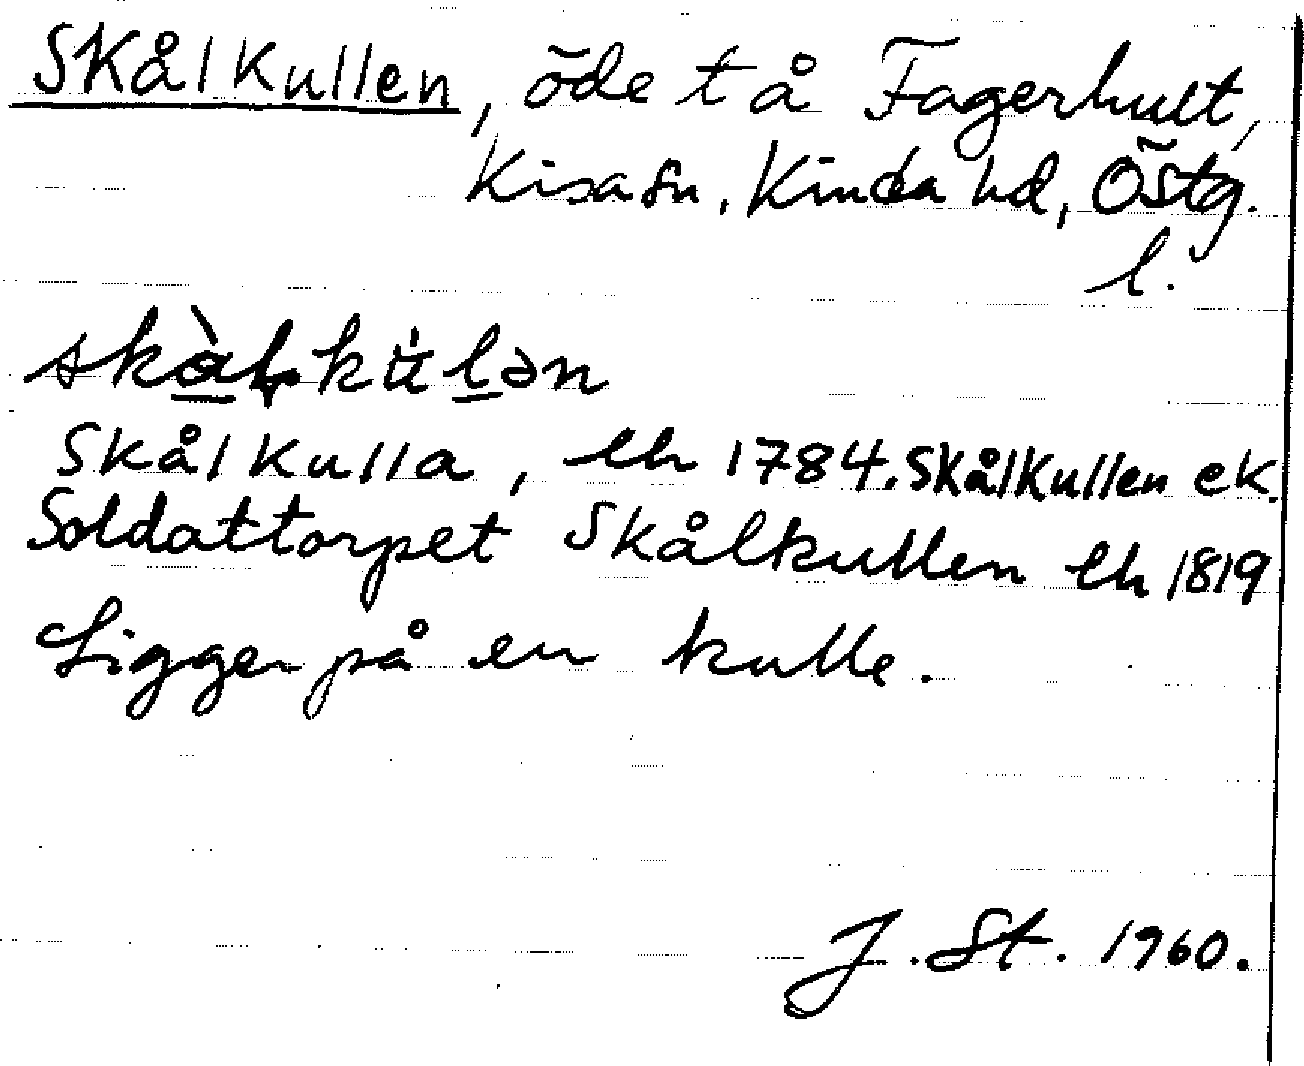 Skålkullen, öde t å Fagerhult,
Kisa sn, Kinda hd, Östg.
l.
skàlkulən
Skålkulla, lh 1784. Skålkullen ek.
Soldattorpet Skålkullen lh 1819
Ligger på en kulle.
J. St. 1960.